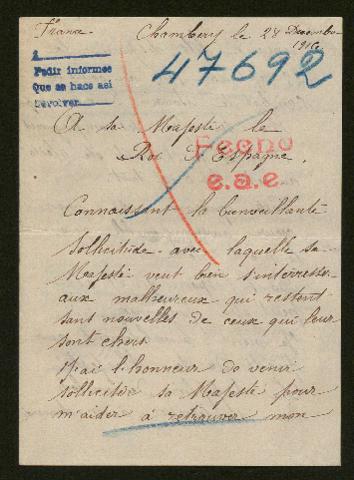 France
Chambéry le 28 Décembre
1916
A
Pedir informes
Que se hace así
Devolver
47692
A sa Majesté le
Roi d'Espagne.
Fecho
e.a.e.
Connaissant la bienveillante
sollicitude avec laquelle sa
Majesté veut bien s'intéresser
aux malheureux qui restent
sant nouvelles de ceux qui leur
sont chers
J'ai l'honneur de venir
solliciter sa Majesté pour
m'aider à retrouver mon